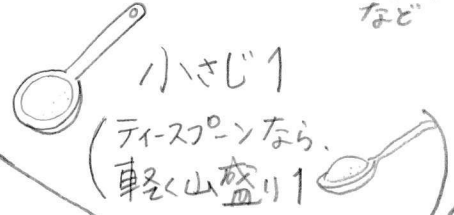 など
小さじ1
(ティースプーンなら、
軽く山盛り1 )